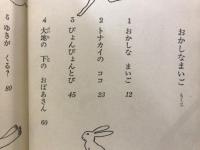 おかしなまいご
もくじ
1 おかしな まいご 12
2 トナカイの ココ 23
3 ぴょんぴょんとび 45
4 大地の 下の おばあさん 60
5 ゆきが くる? 80